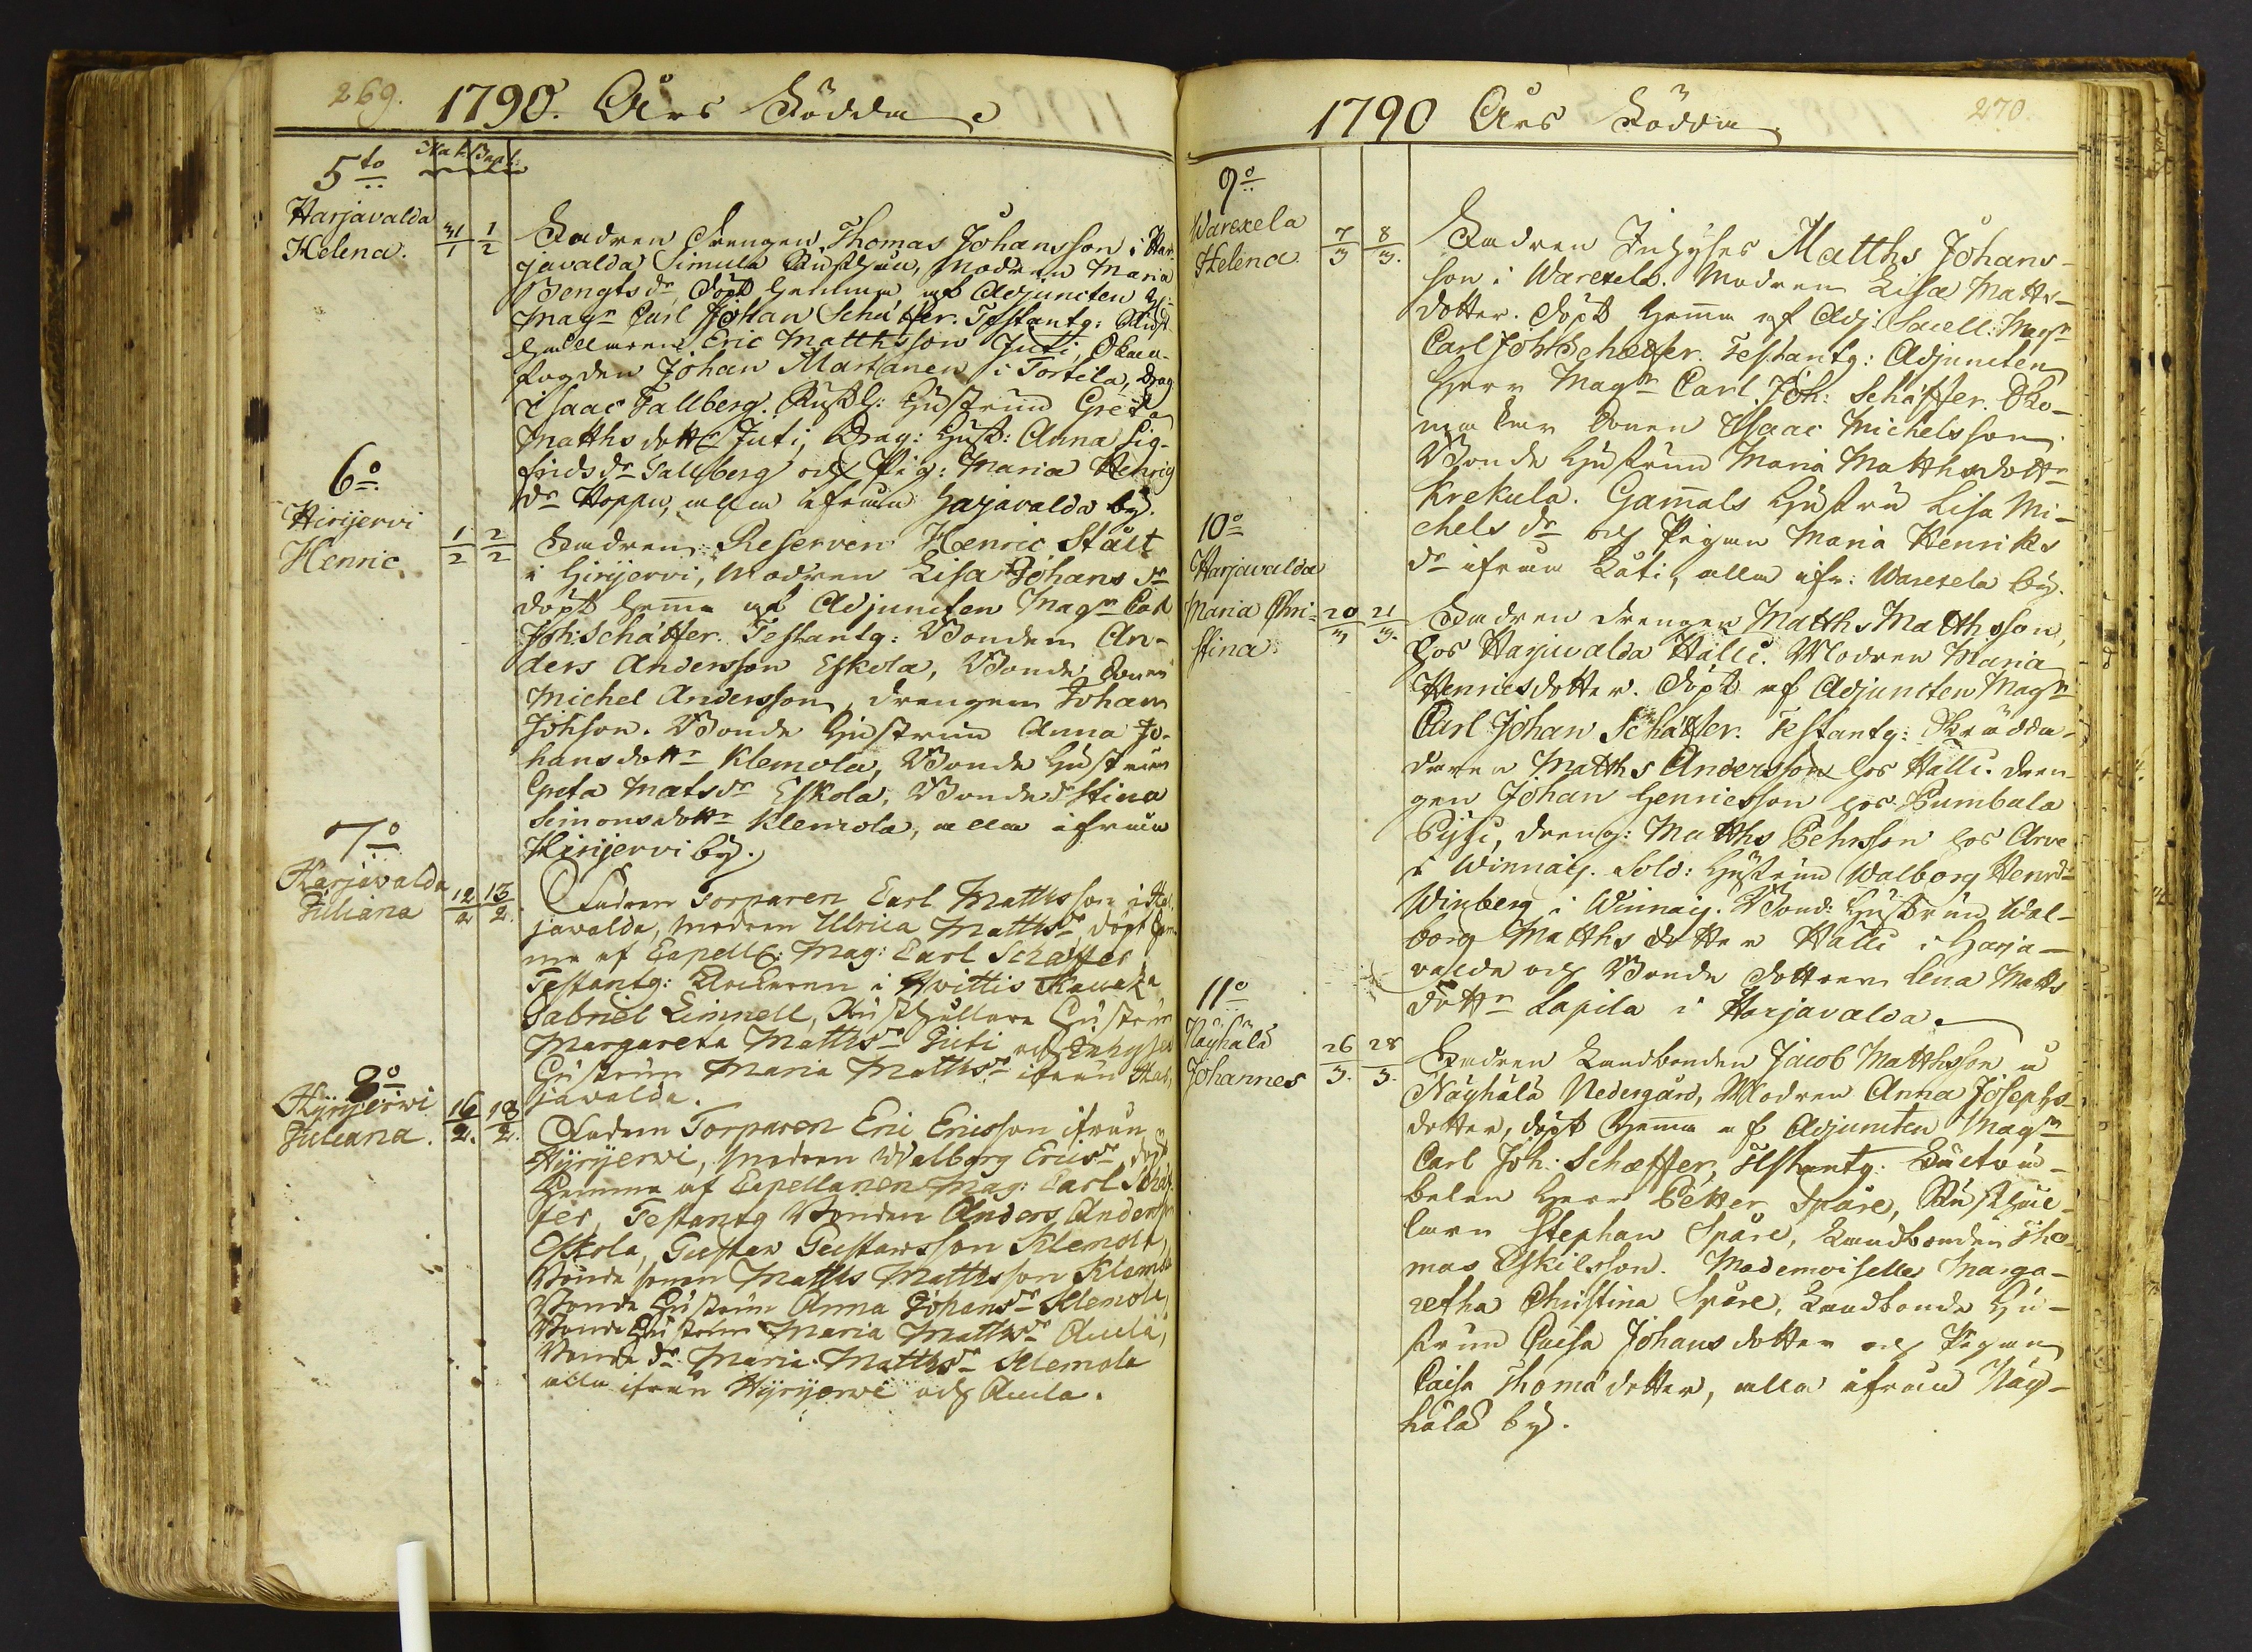 269.
1790. Års Födda
Nat: Bapt:
5to
Harjavalda
Helena.
31/1 1/2
Fadren Drengen Thomas Johansson i Har-
javalda Simula Rusthåll, Modren Maria
Bengts dr, döpt hemma af Adjuncten H:
Magr Carl Johan Schäffer. Testantg: Rust-
hållaren Eric Matthsson Juti,
fogden Johan Martanen i Torttila, Drag
Isaac Tallberg. Rusth: Hustrun Greta
Matths dotter Juti, Drag: Hust: Anna Sig-
frids dr Tallberg och Pig: Maria Henrics
dr Hoppu, alla ifrån Harjavalda by.
6o
Hirijervi
Henric
1/2 2/2
Fadren Reserven Henric Stålt
i Hirijervi, Modren Lisa Johans dr
döpt hemma af Adjuncten Magr Carl
Joh: Schäffer. Testantg: Bonden An-
ders Andersson Eskola, Bonde Sonen
Michel Andersson, Drengen Johan
Johsson. Bonde Hustrun Anna Jo-
hansdottr Klemola, Bonde Hustrun
Greta Matsdr Eskola, Bonde dr Stina
Simonsdottr Klemola, alla ifrån
Hirijervi by.
7o
Harjavalda
Juliana
12/2 13/2.
Fadren Torparen Carl Mattsson i Har-
javalda, modren Ulrica Mattsdr, döpt hem-
ma af Capell: Mag: Carl Schäffer
Testantg: Klockaren i Hvittis
Gabriel Limnell, Rusthållare Hustrun
Margareta Mattsdr Juti och Inhyses
Hustrun Maria Mattsdr ifrån Har-
javalda.
8o
Hyryjerwi
Juliana.
16/2. 18/2.
Fadren Torparen Eric Ericsson ifrån
Hyryjerwi, modren Walborg Ericsdr, döpt
hemma af Capellanen Mag: Carl Schäf-
fer, Testantg Bonden Anders Andersson
Eskola, Gustav Gustavsson Klemola,
Bonde sonen Matts Mattsson Klemola
Bonde Hustrun Anna Johansdr Klemola,
Bonde Hustrun Maria Mattsdr Auila,
Bonde dr. Maria Mattsdr Klemola
alla ifrån Hyryjerwi och Auila.
270
1790 Års Födda
9o
Warexela
Helena
7/3 8/3.
Fadren Inhyses Matths Johans-
son i Warexela. Modren Lisa Matts-
dotter. döpt hemma af Adj: Sacell: Magr
Carl Joh: Schæffer. Testantg: Adjuncten
Herr Magr Carl Joh: Schäffer. Sko-
makar Sonen Isaac Michelsson.
Bonde Hustrun Maria Matthsdottr
Krekula. Gammals Hustru Lisa Mi-
chels dr och Pigan Maria Henriks
dr ifrån Kåti, alla ifr: Warexela by.
10o
Harjavalda
Maria Chri-
stina
20/3 21/3.
Fadren Drengen Matths Matthsson,
hos Harjavalda Hålli. Modren Maria
Henricsdotter. döpt af Adjuncten Magr
Carl Johan Schäffer. Testantg: Skrädda-
daren Matths Andersson hos Hålli. Dren-
gen Johan Henricsson hos Pumbala
Pyssi, Dreng: Matths Pehrsson hos Arve
i Winnais. Sold: Hustrun Walborg Henrdr
Winberg i Winnais. Bond: Hustrun Wal-
borg Matths dotter Hålli i Harja-
valda och Bonde dottren Lena Matts
dottr Lapila i Harjavalda.
11o
Näyhälä
Johannes
26/3. 28/3.
Fadren Landbonden Jacob Matthsson å
Näyhälä Nedergård, Modren Anna Josephs-
dotter, döpt hemma af Adjuncten Magr
Carl Joh: Schæffer, Testantg:
belen Herr Petter Spåre, Rusthål-
laren Stephan Spåre, Landbonden Tho-
mas Eskilsson. Mademoiselle Marga-
retha Christina Spåre, Landbonde Hu-
strun Caisa Johansdotter och Pigan
Caisa Thomædotter, alla ifrån Näy-
hälä by.